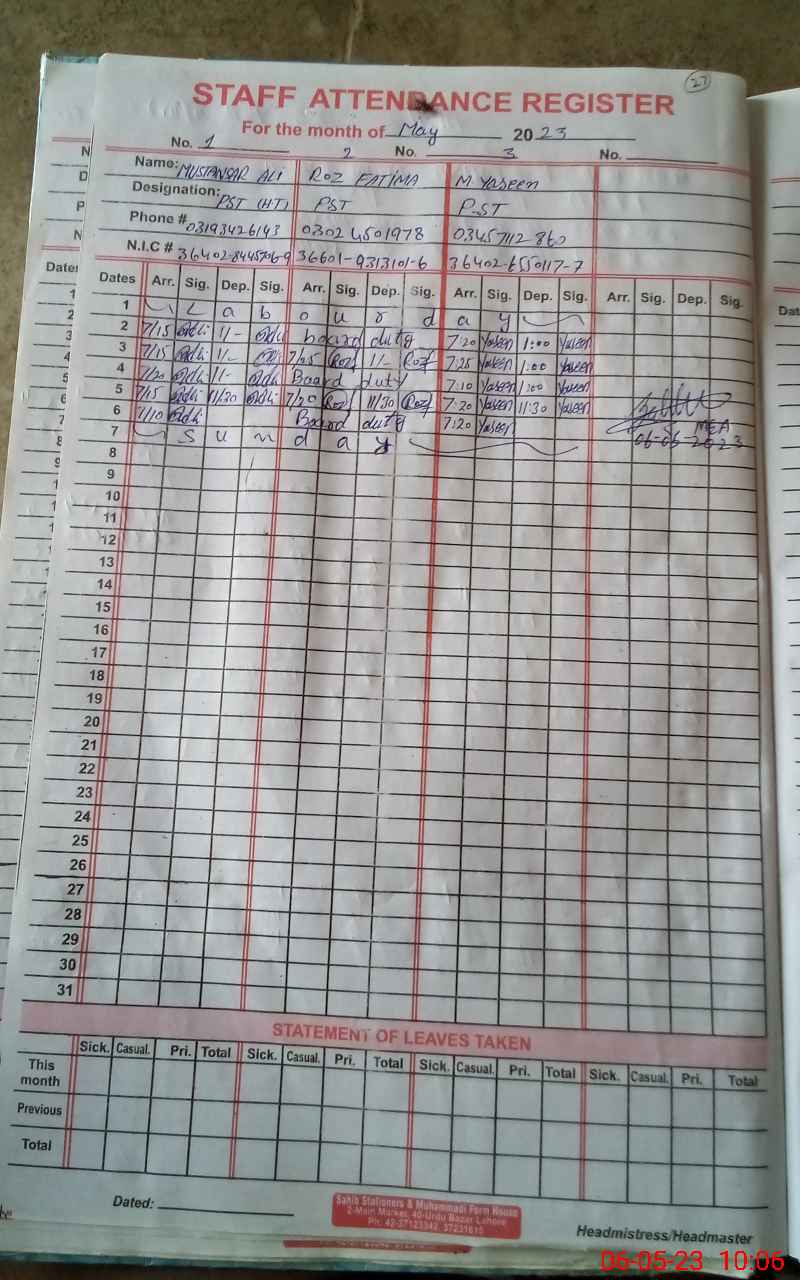 27
STAFF ATTENDANCE REGISTER
For the month of May 2023
No. 1 2 No. 3 No.
Name: MUSTANSAR ALI ROZ FATIMA M Yaseen
Designation: PST (HT) PST PST
Phone # 03193426143 03024501978 03457112860
N.I.C # 36402-8445706-9 36601-9313101-6 36402-6550117-7
Dates Arr. Sig. Dep. Sig. Arr. Sig. Dep. Sig. Arr. Sig. Dep. Sig. Arr. Sig. Dep. Sig.
1 L a b o u r d a y
2 7/15 1/- board duty 7:20 Yaseen 1:00 Yaseen
3 7/15 1/- 7/25 Roz 1/- Roz 7:25 Yaseen 1:00 Yaseen
4 7/20 1/- Board duty 7:10 Yaseen 1:00 Yaseen
5 7/15 11/30 7/20 Roz 11/30 Roz 7:20 Yaseen 11:30 Yaseen
6 7/10 Board duty 7:20 Yaseen MEA
7 S u n d a y 06-05-2023
8
9
10
11
12
13
14
15
16
17
18
19
20
21
22
23
24
25
26
27
28
29
30
31
STATEMENT OF LEAVES TAKEN
Sick. Casual. Pri. Total Sick. Casual. Pri. Total Sick. Casual. Pri. Total Sick. Casual. Pri. Total
This month
Previous
Total
Dated:
Sahib Stationers & Muhammadi Form House
2-Main Market, 40-Urdu Bazar Lahore
Ph: 42-37123342, 37231615
Headmistress/Headmaster
06-05-23 10:06